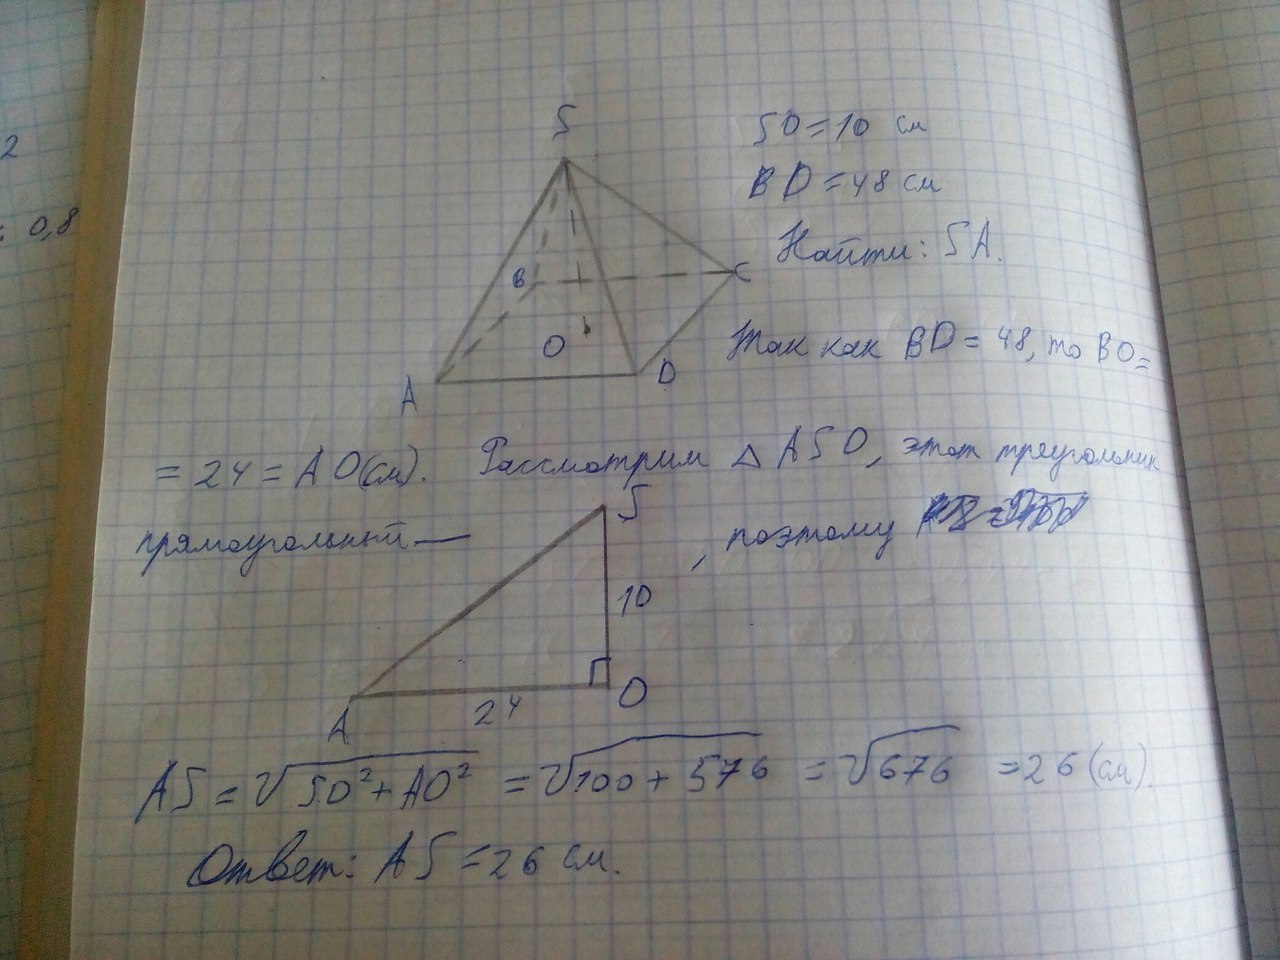 2
: 0,8
S
SO=10 см
BD=48 см
Найти: SA.
B
C
O
A
D
Так как BD=48, то BO=
=24=AO(см). Рассмотрим △ ASO, этот треугольник
прямоугольный —
S
, поэтому
10
A
24
O
AS=√SO²+AO² =√100+576 =√676 =26(см).
Ответ: AS=26 см.